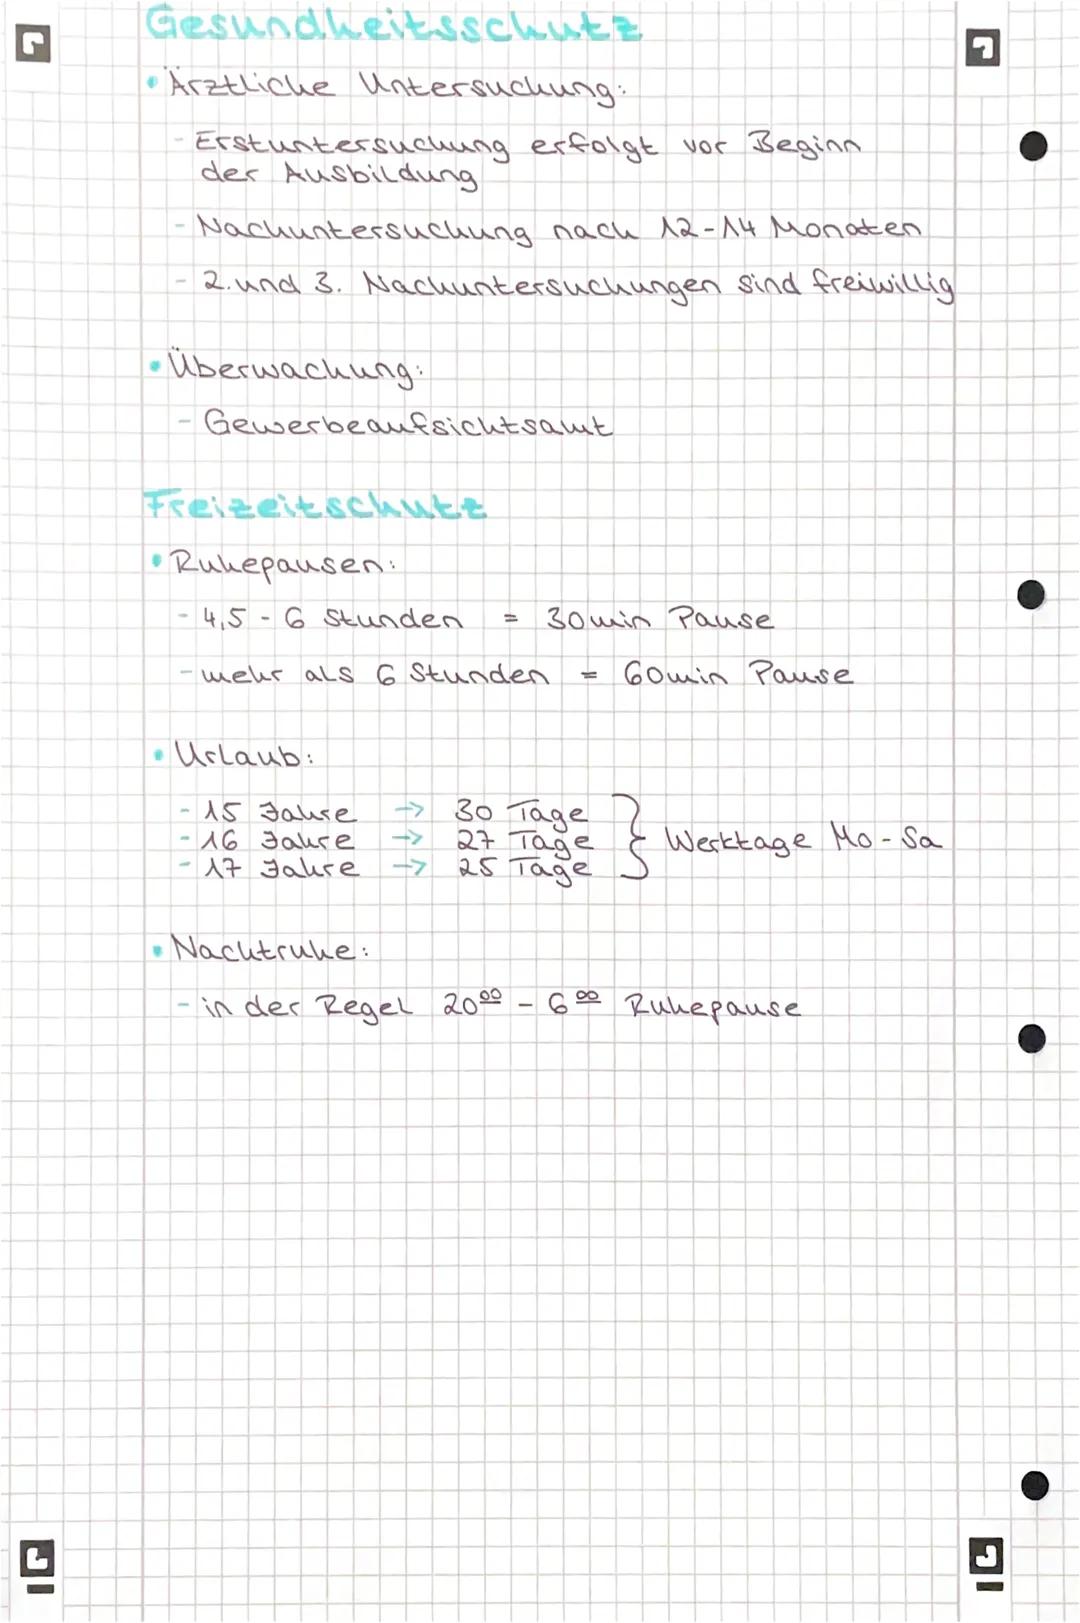 Gesundheitsschutz
• Ärztliche Untersuchung:
- Erstuntersuchung erfolgt vor Beginn
der Ausbildung
- Nachuntersuchung nach 12-14 Monaten
- 2. und 3. Nachuntersuchungen sind freiwillig
• Überwachung:
- Gewerbeaufsichtsamt
Freizeitschutz
• Ruhepausen:
- 4,5 - 6 Stunden = 30min Pause
- mehr als 6 Stunden = 60min Pause
• Urlaub:
- 15 Jahre → 30 Tage
- 16 Jahre → 27 Tage } Werktage Mo - Sa
- 17 Jahre → 25 Tage
• Nachtruhe:
- in der Regel 20⁰⁰ - 6⁰⁰ Ruhepause